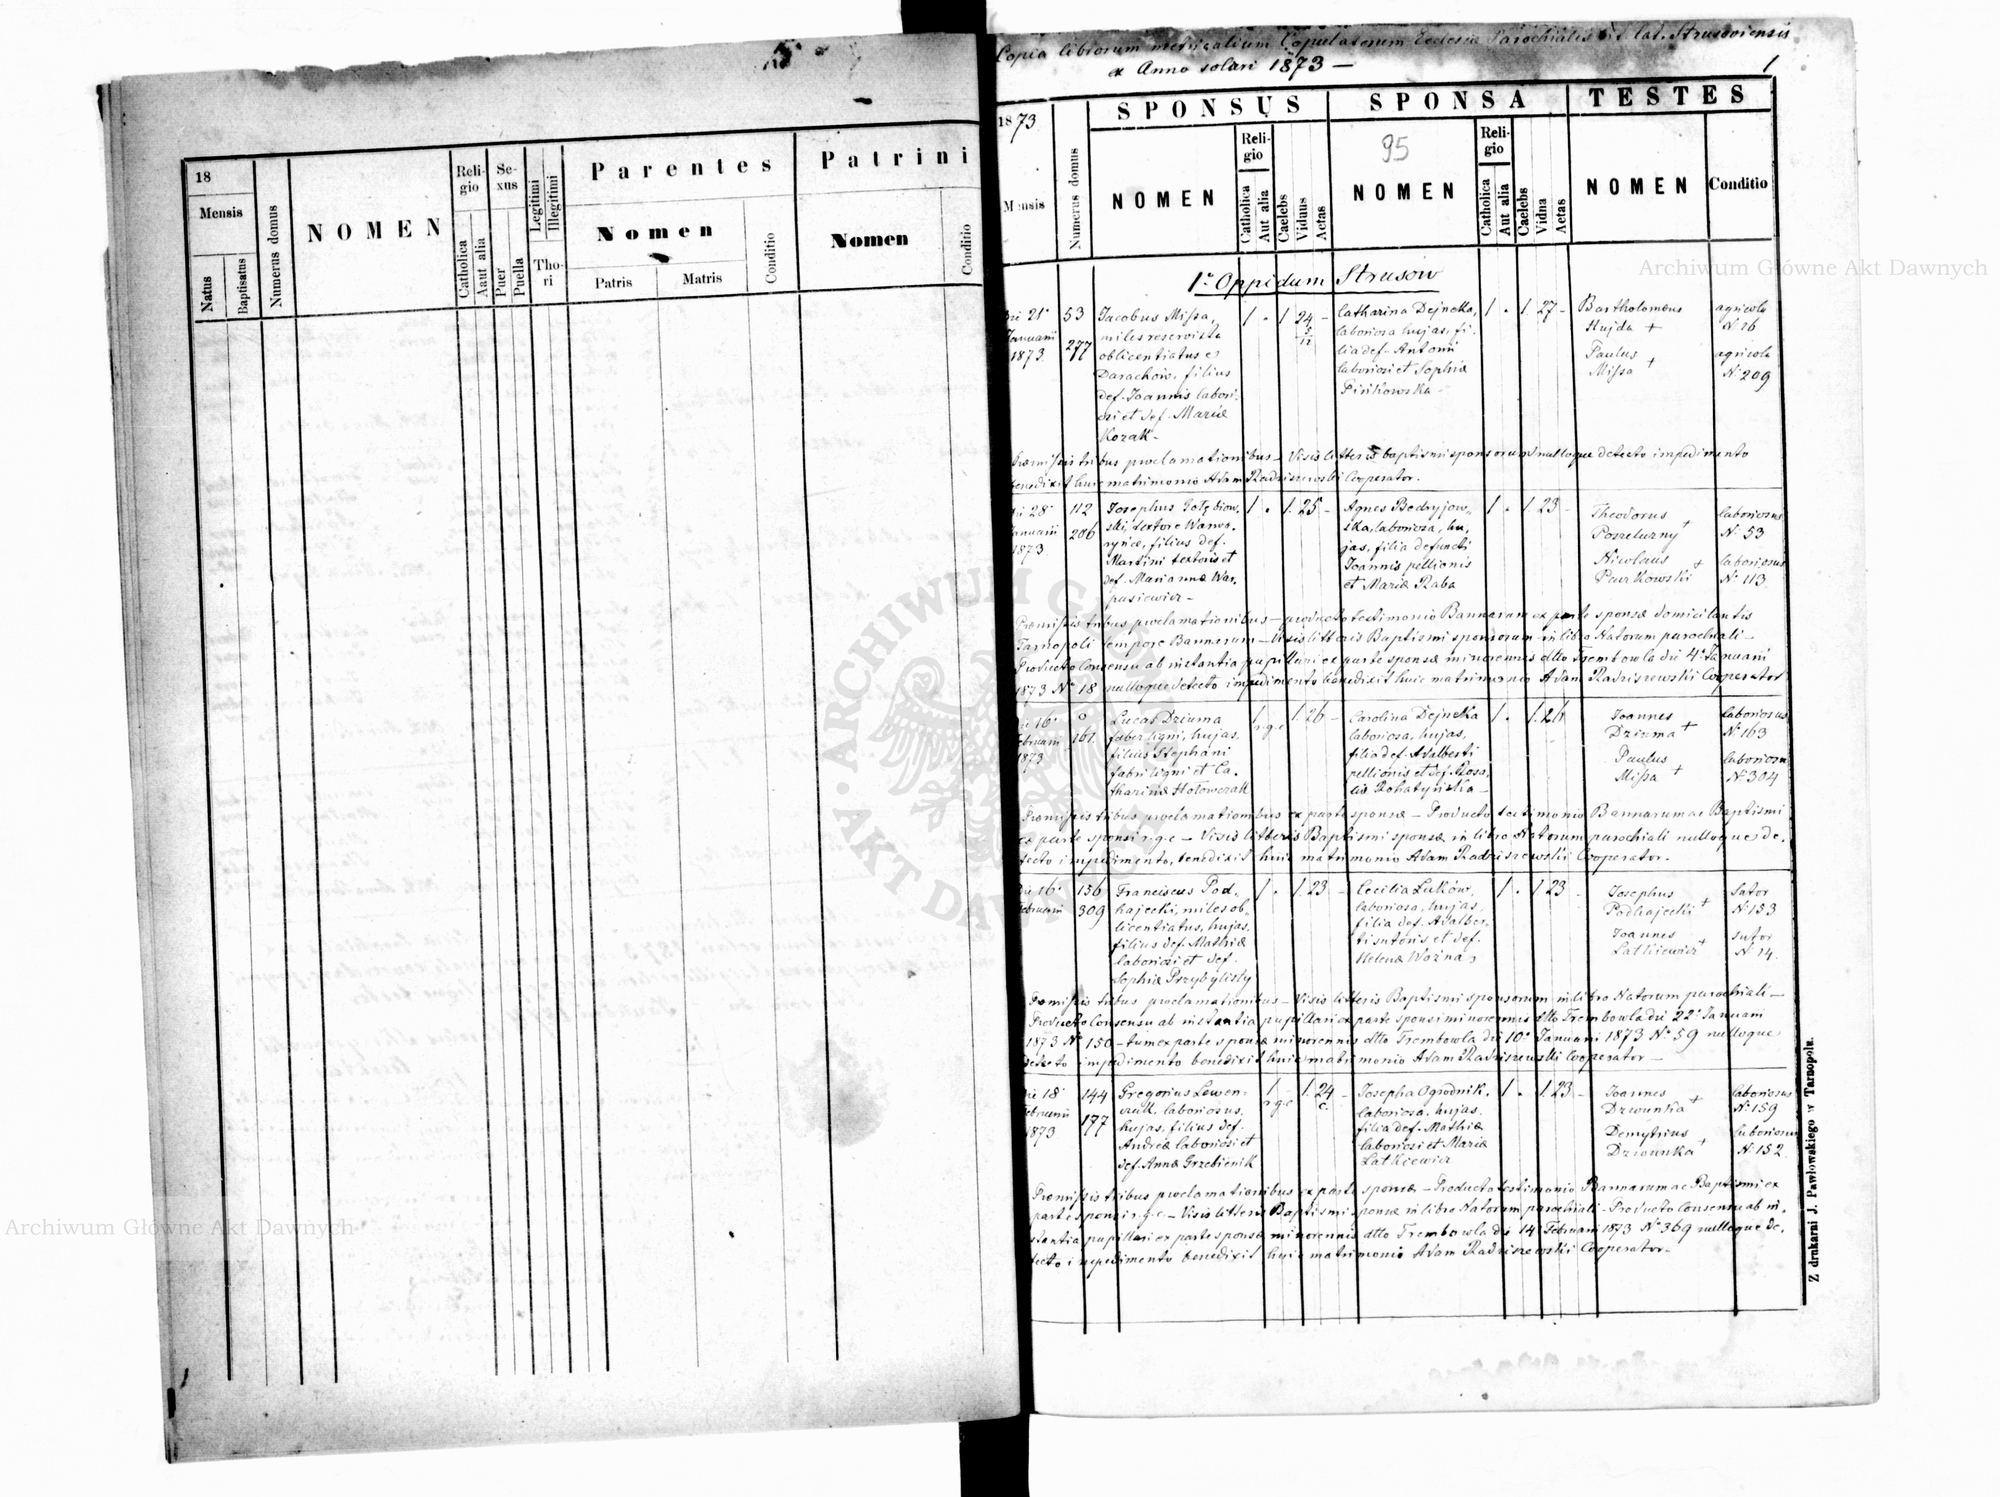 18
Mensis
Natus
Baptisatus
Numerus domus
NOMEN
Religio
Catholica
Aaut alia
Sexus
Puer
Puella
Legitimi
Illegitimi
Thori
Parentes
Nomen
Patris
Matris
Conditio
Patrini
Nomen
Conditio
Copia librorum metricalium Copulatorum Ecclesiæ Parochialis rit. lat. Strusoviensis
ex Anno solari 1873 —
1
1873
Mensis
Numerus domus
SPONSUS
NOMEN
Religio
Catholica
Aut alia
Caelebs
Viduus
Aetas
SPONSA
95
NOMEN
Religio
Catholica
Aut alia
Caelebs
Vidua
Aetas
TESTES
NOMEN
Conditio
1° Oppidum Strusow
Die 21ª
Januarii
1873
53
277
Jacobus Missa,
miles reservista
oblicentiatus e
Darachów, filius
def. Joannis labori-
osi et def. Mariæ
Kozak -
1 . 1 24
Catharina Dejneka,
laboriosa hujas, fi-
lia def. Antonii
laboriosi et Sophiæ
Pińkowska -
1 . 1 27 -
Bartholomeus
Hujda +
Paulus
Missa +
agricola
N. 16
agricola
N. 209
Præmissis tribus proclamationibus – Visis litteris baptismi sponsorum nulloque detecto impedimento
benedixit huic matrimonio Adam Radziszewski Cooperator.
Die 28ª
Januarii
1873
112
206
Josephus Gołębiow-
ski textor e Warwa-
ryńce, filius def.
Martini textoris et
def. Mariannæ War-
pusiewicz -
1 . 1. 25 -
Agnes Bedryjow-
ska, laboriosa, hu-
jas, filia defuncti
Joannis pellionis
et Mariæ Raba
1 . 1. 23 -
Theodorus
Poszeluzny +
Nicolaus
Piurkowski +
laboriosus
N. 53
laboriosus
N. 113
Præmissis tribus proclamationibus – producto testimonio Bannarum ex parte sponsæ domicilantis
Tarnopoli tempore Bannarum – Visis litteris Baptismi sponsorum in libro Natorum parochiali –
Producto Consensu ab instantia pupillari ex parte sponsæ minorennis dtto Trembowla die 4ª Januarii
1873 N° 18 nulloque detecto impedimento benedixit huic matrimonio Adam Radziszewski Cooperator
Die 16ª
Februarii
1873
161.
Lucas Dziuma
faber ligni, hujas,
filius Stephani
fabri ligni et Ca-
tharinæ Hołowczak
1 r.g.c 1. 26 -
Carolina Dejneka
laboriosa, hujas,
filia def. Adalberti
pellionis et def. Rosa-
liæ Rohatyńska -
1. - 1. 26 -
Joannes
Dziuma +
Paulus
Missa +
laboriosus
N° 163
laboriosus
N° 304
Præmissis tribus proclamationibus ex parte sponsæ – Producto testimonio Bannarum ac Baptismi
ex parte sponsi r.g.c – Visis litteris Baptismi sponsæ in libro Natorum parochiali nulloque de-
tecto impedimento, benedixit huic matrimonio Adam Radziszewski Cooperator.
Die 16ª
Februarii
156
309
Franciscus Pod-
hajecki, miles ob-
licentiatus, hujas,
filius def. Mathiæ
laboriosi et def.
Sophiæ Przybylisty
1 . 1. 23 -
Cecilia Luków,
laboriosa, hujas,
filia def. Adalber-
ti sutoris et def.
Helenæ Woźna
1 . 1. 23 -
Josephus
Podhajecki +
Joannes
Latkiewicz +
Sutor
N. 153
Sutor
N. 14.
Præmissis tribus proclamationibus – Visis litteris Baptismi sponsorum in libro Natorum parochiali –
Producto Consensu ab instantia pupillari ex parte sponsi minorennis dtto Trembowla die 22ª Januarii
1873 N° 150 – tum ex parte sponsæ minorennis dtto Trembowla die 10ª Januarii 1873 N° 59 nulloque
detecto impedimento benedixit huic matrimonio Adam Radziszewski Cooperator –
Die 18ª
Februarii
1873
144
177
Gregorius Lewen-
czuk, laboriosus,
hujas, filius def.
Andreæ laboriosi et
def. Annæ Grzebienik
1 r.g.c 1. 24 -
Josepha Ogrodnik,
laboriosa, hujas,
filia def. Mathiæ
laboriosi et Mariæ
Latkiewicz
1 . 1. 23 -
Joannes
Dziunka +
Demytrius
Dziunka +
laboriosus
N. 159
laboriosus
N. 152
Præmissis tribus proclamationibus ex parte sponsæ – Producto testimonio Bannarum ac Baptismi ex
parte sponsi r.g.c – Visis litteris Baptismi sponsæ in libro Natorum parochiali – Producto Consensu ab in-
stantia pupillari ex parte sponsæ minorennis dtto Trembowla die 14 Februarii 1873 N° 369 nulloque de-
tecto impedimento benedixit huic matrimonio Adam Radziszewski Cooperator –
Z drukarni J. Pawłowskiego w Tarnopolu.
Archiwum Główne Akt Dawnych
Archiwum Główne Akt Dawnych
ARCHIWUM GŁÓWNE AKT DAWNYCH